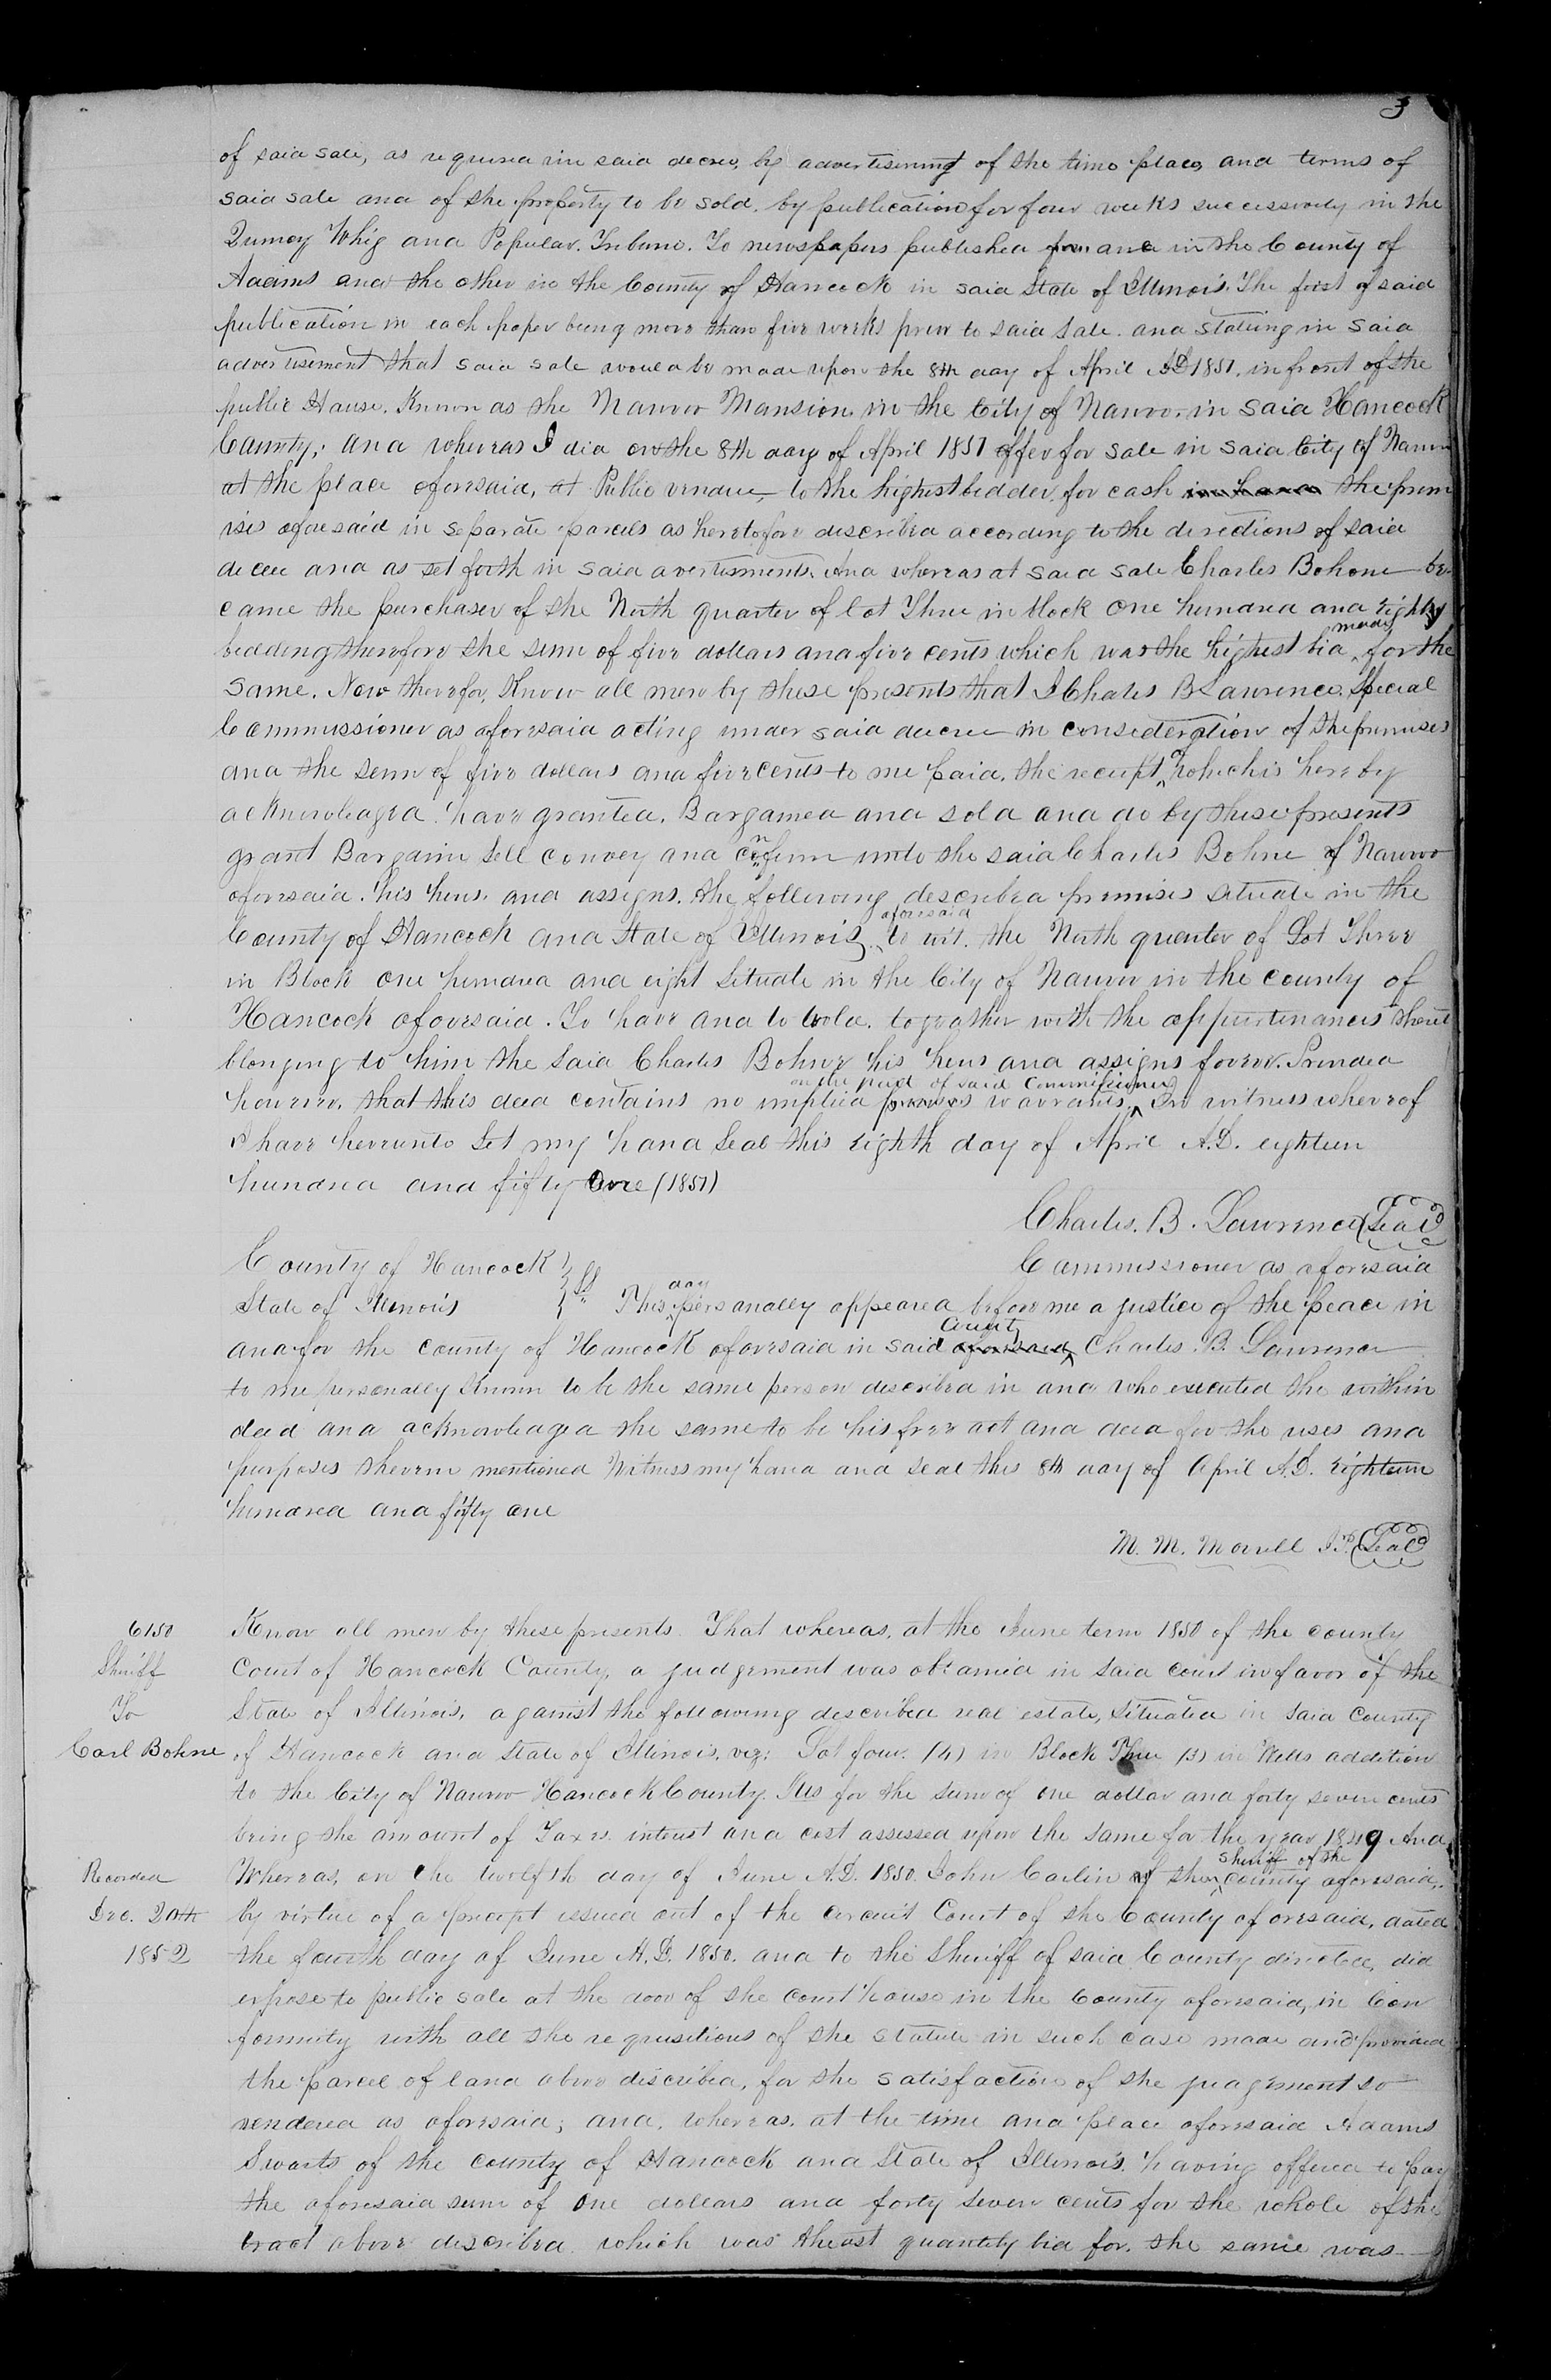 3
of said sale, as required in said decree, by advertisement of the time place, and terms of
said sale and of the property to be sold, by publication for four weeks successively in the
Quincy Whig and Popular Tribune. To newspapers published from and in the County of
Adams and the other in the County of Hancock in said State of Illinois. The first of said
publication in each paper being more than five weeks prior to said sale. and stateing in said
advertisement that said sale would be made upon the 8th day of April A.D 1851. in front of the
public House. Known as the Nauvoo Mansion in the City of Nauvoo. in said Hancock
County; and whereas I did on the 8th day of April 1851 offer for sale in said City of Nauvoo
at the place aforesaid, at Public vendue, to the highest bidder, for cash in hand the prem
ises aforesaid in separate parcels as heretofore described according to the directions of said
decree and as set forth in said avertisments. And whereas at said sale Charles Bohone be-
came the purchaser of the North quarter of lot Three in block one hundred and eighty
bidding therefore the sum of five dollars and five cents which was the highest bid made for the
same. Now therefor, Know all men by these presents that I Charles B Lawrence, Special
Commmissioner as aforesaid acting under said decree in consideration of the premises
and the sum of five dollars and five cents to me paid, the receipt which is hereby
acknowledged. have granted, Bargained and sold and do by these presents
grant Bargain Sell convey and confirm unto the said Charles Bohne of Nauvoo
aforesaid. his heirs. and assigns. the following described premises situate in the
County of Hancock and State of Illinois. aforesaid to wit. the North quarter of Lot Three
in Block one hundred and eight Situate in the City of Nauvoo in the county of
Hancock aforesaid. To have and to hold. togeather with the appurtenances thereto
blonging to him the said Charles Bohne his heirs and assigns forever. Provided
however, that this deed contains no implied promises warrants, on the part of said Commissioner In witness whereof
I have hereunto Set my hand Seal this eighth day of April A.D. eighteen
hundred and fifty One (1851)
Charles. B. Lawrence (Seal)
County of Hancock } ss Commissioner as aforesaid
State of Illinois } This day personally appeared before me a justice of the peace in
and for the county of Hancock aforesaid in said aforesaid County Charles. B. Lawrence
to me personally known to be the same person described in and who executed the within
deed and acknowledged the same to be his free act and deed for the uses and
purposes therein mentioned Witness my hand and seal this 8th day of April A.D. eighteen
hundred and fifty one
M. M. Morrill J.P. (Seal)
6150
Sheriff
To
Carl Bohne
Recorded
Dec. 20th
1852
Know all men by these presents. That whereas, at the June term 1850 of the county
Court of Hancock County, a judgement was obtained in said court in favor of the
State of Illinois, against the following described real estate, Situated in said County
of Hancock and State of Illinois, viz: Lot four. (4) in Block Three (3) in Wells addition
to the City of Nauvoo Hancock County. Ills for the sum of one dollar and forty seven cents
being the amount of Taxes. interest and cost assessed upon the same for the year 1849 And
Whereas, on the twelfth day of June A.D. 1850. John Carlin of the sheriff of the county aforesaid,
by virtue of a precept issued out of the circuit Court of the County aforesaid, dated
the fourth day of June A.D. 1850. and to the Sheriff of said County directed, did
expose to public sale at the door of the court house in the County aforesaid, in Con
formity with all the requisitions of the statute in such case made and provided
the parcel of land above described, for the satisfaction of the judgement so
rendered as aforesaid; and, whereas, at the time and place aforesaid Adams
Swarts of the county of Hancock and State of Illinois. having offered to pay
the aforesaid sum of one dollars and forty seven cents for the whole of the
tract above described which was theast quantity bid for. the same was